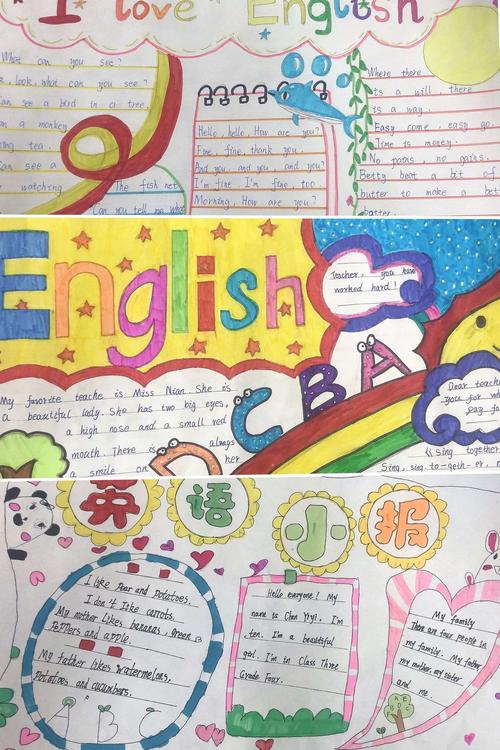 I love English
What can you see?
look, what can you see?
see a bird in a tree.
a monkey
tea.
Can see a
watching
The fish net
Can you tell me what
Hello, hello. How are you?
Fine fine, thank you.
And you, and you, and you?
I'm fine I'm fine, too.
Morning. How are you?
Where there
is a will, there
is a way.
Easy come easy go.
Time is money.
No pains no gains.
Betty beat a bit of
butter to make a bet
batter.
English
Teacher, you have
worked hard!
D C B A
My favorite teache is Miss Nian. She is
a beautiful lady. She has two big eyes,
a high nose and a small red
mouth. There is always
a smile on her
Dear teach
you for wh
pay fo
《Sing together
Sing, sing, to-geth-er,
英语小报
I like Pear and Potatoes.
I don't like carrots.
My mother likes bananas, green
Peppers and apple.
My father likes watermelons,
Potatoes and cucumbers.
A B C
Hello everyone! My
name is Chen Yiyi. I'm
ten. I'm a beautiful
girl. I'm in Class Three
Grade Four.
My family
There are four people in
my family. My father
my mother, my sister
and me.